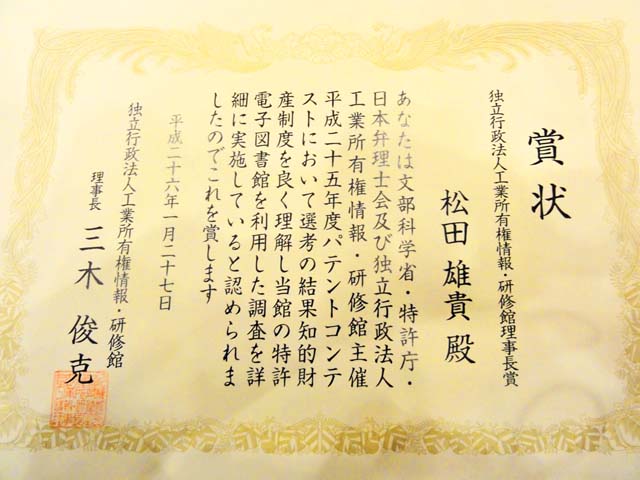 賞状
独立行政法人工業所有権情報・研修館理事長賞
松田 雄貴 殿
あなたは文部科学省・特許庁・
日本弁理士会及び独立行政法人
工業所有権情報・研修館主催
平成二十五年度パテントコンテ
ストにおいて選考の結果知的財
産制度を良く理解し当館の特許
電子図書館を利用した調査を詳
細に実施していると認められま
したのでこれを賞します
平成二十六年一月二十七日
独立行政法人工業所有権情報・研修館
理事長 三木 俊克